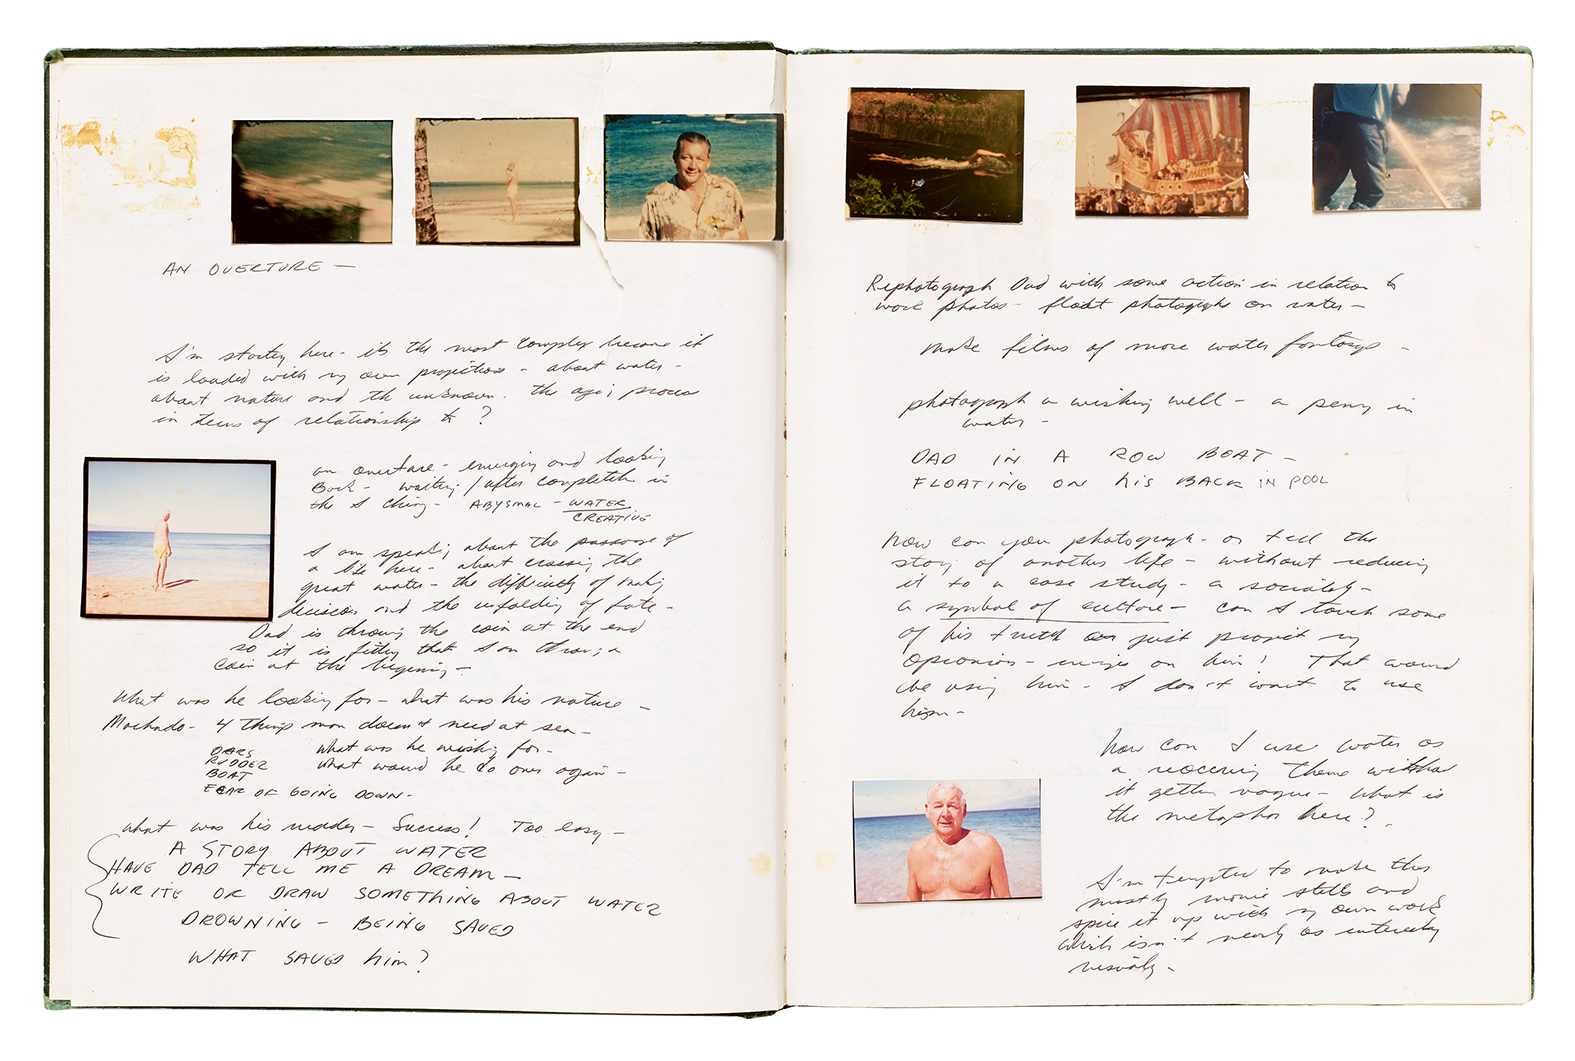 AN OVERTURE —
I'm starting here - it's the most complex because it
is loaded with my own projections - about water -
about nature and the unknown. the aging process
in terms of relationship to ?
an overture - emerging and looking
Back - waiting / after completion in
the I Ching - ABYSMAL - WATER
CREATIVE
I am speaking about the passage of
a life here - about crossing the
great water - the difficulty of making
decisions and the unfolding of fate -
Dad is throwing the coin at the end
so it is fitting that I am throwing a
coin at the beginning -
What was he looking for - what was his nature -
Machado - 4 things man doesn't need at sea -
OARS what was he wishing for -
RUDDER what would he do over again -
BOAT
FEAR OF GOING DOWN -
what was his rudder - Success! Too easy -
A STORY ABOUT WATER
HAVE DAD TELL ME A DREAM -
WRITE OR DRAW SOMETHING ABOUT WATER
DROWNING - BEING SAVED
WHAT SAVED him?
Rephotograph Dad with some action in relation to
work photos - float photographs on water -
make films of more water footage -
photograph a wishing well - a penny in
water -
DAD IN A ROW BOAT -
FLOATING ON his BACK IN POOL
how can you photograph - or tell the
story of another life - without reducing
it to a case study - a
a symbol of culture - can I touch some
of his truth or just project my
opinions - on him! That would
be using him - I don't want to use
him -
how can I use water as
a reoccuring theme without
it getting vague - what is
the metaphor here?
I'm tempted to make this
mostly movie stills and
spice it up with my own work
which isn't nearly as interesting
visually -